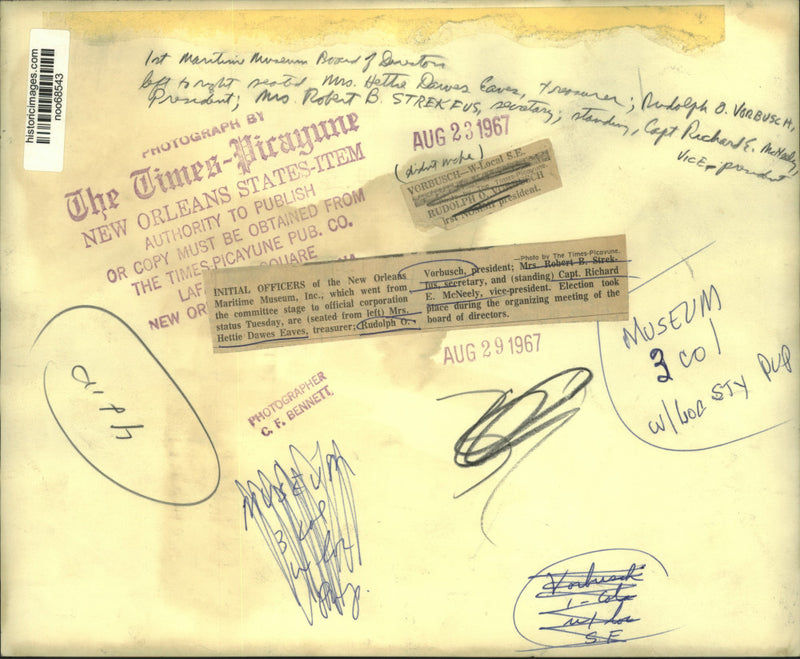 historicimages.com
noo68543
1st Maritime Museum Board of Directors
left to right seated Mrs. Hettie Dawes Eaves, treasurer; Rudolph O. VORBUSCH,
President; Mrs. Robert B. STREKFUS, secretary; standing, Capt Richard E. McNeely,
vice-president
PHOTOGRAPH BY
The Times-Picayune
NEW ORLEANS STATES-ITEM
AUTHORITY TO PUBLISH
OR COPY MUST BE OBTAINED FROM
THE TIMES-PICAYUNE PUB. CO.
SQUARE
NEW OR
AUG 23 1967
(didnt make)
VORBUSCH—W-Local S.E.
RUDOLPH O. VORBUSCH
president.
INITIAL OFFICERS of the New Orleans
Maritime Museum, Inc., which went from
the committee stage to official corporation
status Tuesday, are (seated from left) Mrs.
Hettie Dawes Eaves, treasurer; Rudolph O.
—Photo by The Times-Picayune.
Vorbusch, president; Mrs. Robert B. Strek-
fus, secretary, and (standing) Capt. Richard
E. McNeely, vice-president. Election took
place during the organizing meeting of the
board of directors.
AUG 29 1967
MUSEUM
3 COl
w/LOC STY PUP
PHOTOGRAPHER
C. F. BENNETT
MUSEUM
3 col
w/Loc
Sty.
Vorbusch
1-Col
w/loc
S.E